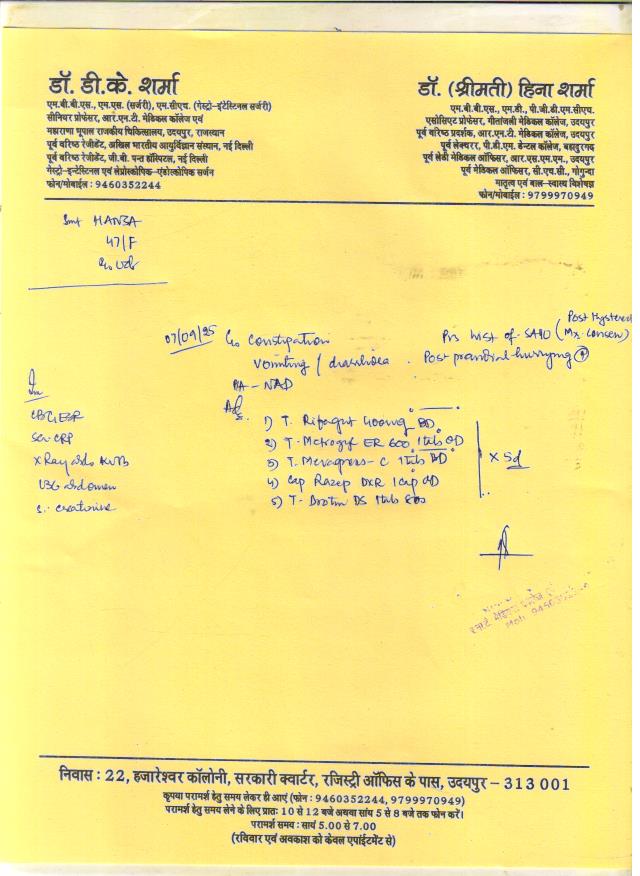 डॉ. डी.के. शर्मा
एम.बी.बी.एस., एम.एस. (सर्जरी), एम.सीएच. (गेस्ट्रो-इंटेस्टिनल सर्जरी)
सीनियर प्रोफेसर, आर.एन.टी. मेडिकल कॉलेज एवं
महाराणा भूपाल राजकीय चिकित्सालय, उदयपुर, राजस्थान
पूर्व वरिष्ठ रेजीडेंट, अखिल भारतीय आयुर्विज्ञान संस्थान, नई दिल्ली
पूर्व वरिष्ठ रेजीडेंट, जी.बी. पन्त हॉस्पिटल, नई दिल्ली
गेस्ट्रो-इन्टेस्टिनल एवं लेप्रोस्कोपिक-एंडोस्कोपिक सर्जन
फोन/मोबाईल : 9460352244
डॉ. (श्रीमती) हिना शर्मा
एम.बी.बी.एस., एम.डी., पी.जी.डी.एम.सीएच.
एसोसिएट प्रोफेसर, गीतांजली मेडिकल कॉलेज, उदयपुर
पूर्व वरिष्ठ प्रदर्शक, आर.एन.टी. मेडिकल कॉलेज, उदयपुर
पूर्व लेक्चरर, पी.डी.एम. डेन्टल कॉलेज, बहादुरगढ़
पूर्व लेडी मेडिकल ऑफिसर, आर.एस.एम.एम., उदयपुर
पूर्व मेडिकल ऑफिसर, सी.एच.सी., गोगुन्दा
मातृत्व एवं बाल-स्वास्थ्य विशेषज्ञ
फोन/मोबाईल : 9799970949
Smt HANSA
47/F
07/09/25 C/o Constipation
Vomiting / diarrhoea
Prs Hist of
Post prandial hurrying
PA - NAD
Adv
1) T. Rifagut 400mg BD
2) T. Metrogyl ER 600 1tab OD
3) T. 1tab BD
4) Cap Razep DXR 1cap OD
5) T. Drotin DS 1tab SOS
x 5d
CBC/ESR
Ser CRP
X Ray abdo KUB
USG abdomen
S. creatinine
निवास : 22, हजारेश्वर कॉलोनी, सरकारी क्वार्टर, रजिस्ट्री ऑफिस के पास, उदयपुर - 313 001
कृपया परामर्श हेतु समय लेकर ही आएं (फोन : 9460352244, 9799970949)
परामर्श हेतु समय लेने के लिए प्रातः 10 से 12 बजे अथवा सांय 5 से 8 बजे तक फोन करें।
परामर्श समय : सायं 5.00 से 7.00
(रविवार एवं अवकाश को केवल एपॉईंटमेंट से)